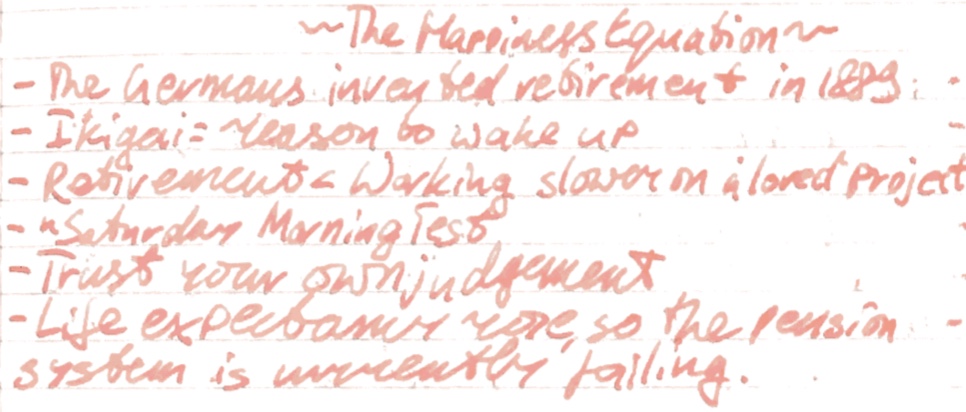 ~The Happiness Equation~
- The Germans invented retirement in 1889.
- Ikigai = reason to wake up
- Retirement < Working slower on a loved project
- "Saturday Morning Test"
- Trust your own judgement
- Life expectancy rose, so the pension
system is currently failing.